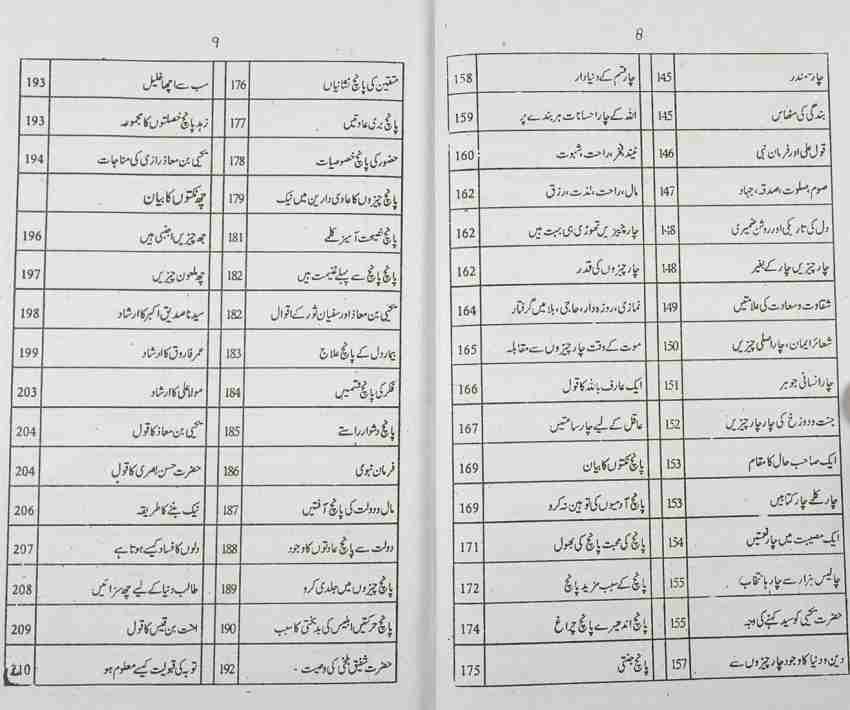 8
چار سمندر 145
بندگی کی مٹھاس 145
قول علی اور فرمان نبی 146
صوم، صلوت، صدقہ، جہاد 147
دل کی تاریکی اور روشن ضمیری 148
چار چیزیں چار کے بغیر 148
شقاوت و سعادت کی علامتیں 149
شعائر ایمان، چار اصلی چیزیں 150
چار انسانی جوہر 151
جنت و دوزخ کی چار چار چیزیں 152
ایک صاحب حال کا مقام 153
چار کلمے چار کتابیں 153
ایک مصیبت میں چار نعمتیں 154
چالیس ہزار سے چار ہا انتخاب 155
حضرت یحییٰ کو سید کہنے کی وجہ 155
دین و دنیا کا وجود چار چیزوں سے 157
چار قسم کے دنیا دار 158
اللہ کے چار احسانات ہر بندے پر 159
نیند، فخر، راحت، شہوت 160
مال، راحت، لذت، رزق 162
چار چیزیں تھوڑی ہی بہت ہیں 162
چار چیزوں کی قدر 162
نمازی، روزہ دار، حاجی، بلا میں گرفتار 164
موت کے وقت چار چیزوں سے مقابلہ 165
ایک عارف باللہ کا قول 166
عاقل کے لیے چار ساعتیں 167
پانچ نکتوں کا بیان 169
پانچ آدمیوں کی توہین نہ کرو 169
پانچ کی محبت پانچ کی بھول 171
پانچ کے سبب مزید پانچ 172
پانچ اندھیرے پانچ چراغ 174
پانچ جنتی 175
9
متقین کی پانچ نشانیاں 176
پانچ بری عادتیں 177
حضور کی پانچ خصوصیات 178
پانچ چیزوں کا عادی دارین میں نیک 179
پانچ نصیحت آمیز کلمے 181
پانچ پانچ سے پہلے غنیمت ہیں 182
یحییٰ بن معاذ اور سفیان ثور کے اقوال 182
بیمار دل کے پانچ علاج 183
فکر کی پانچ قسمیں 184
پانچ دشوار راستے 185
فرمان نبوی 186
مال و دولت کی پانچ آفتیں 187
دولت سے پانچ عادتوں کا وجود 188
پانچ چیزوں میں جلدی کرو 189
پانچ حرکتیں ابلیس کی بدبختی کا سبب 190
حضرت شفیق بلخی کی وصیت۔ 192
سب سے اچھا خلیل 193
زہد پانچ خصلتوں کا مجموعہ 193
یحییٰ بن معاذ رازی کی مناجات 194
چھ نکتوں کا بیان
چھ چیزیں اجنبی ہیں 196
چھ ملعون چیزیں 197
سیدنا صدیق اکبر کا ارشاد 198
عمر فاروق کا ارشاد 199
مولا علی کا ارشاد 203
یحییٰ بن معاذ کا قول 204
حضرت حسن بصری کا قول 204
نیک بننے کا طریقہ 206
دلوں کا فساد کیسے ہوتا ہے 207
طالب دنیا کے لیے چھ سزائیں 208
احنف بن قیس کا قول 209
توبہ کی قبولیت کیسے معلوم ہو 210